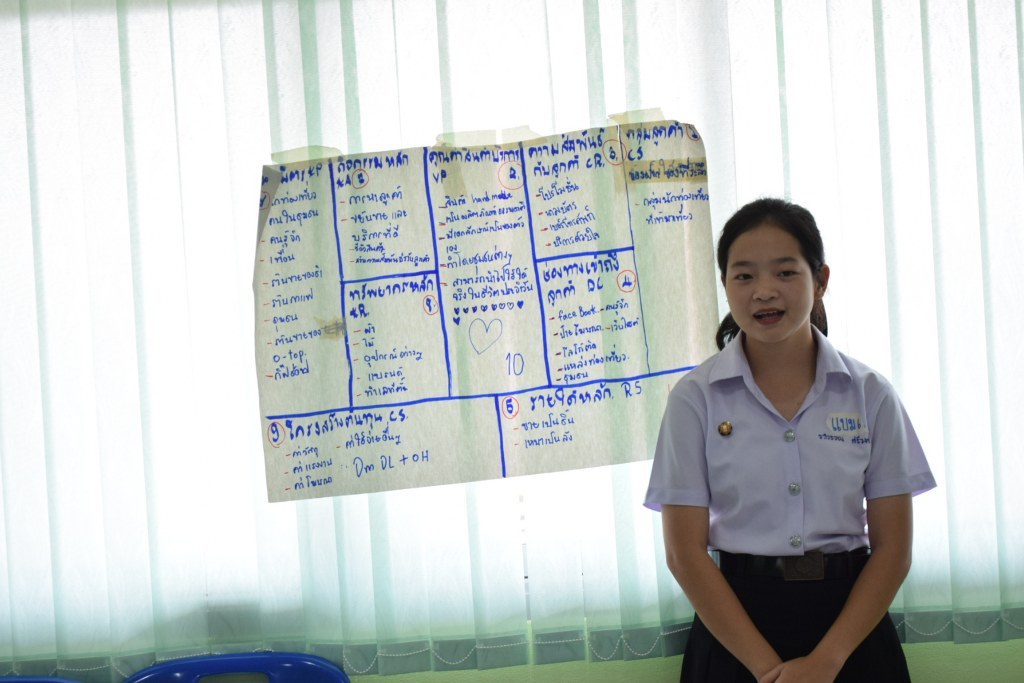 KP
กิจกรรมหลัก
KA
- การหาลูกค้า
ขยันขาย และ
บริการที่ดี
คุณค่าสินค้าบริการ
VP 2
- สินค้า hand made
- เป็นผลิตภัณฑ์ธรรมชาติ
- มีเอกลักษณ์เป็นของตัว
เอง
- ทำโดยชุมชนต่างๆ
- สามารถนำไปใช้ได้
จริงในชีวิตประจำวัน
10
ความสัมพันธ์
กับลูกค้า CR
- โปรโมชั่น
- นามบัตร
กลุ่มลูกค้า 1
CS
- กลุ่มนักท่องเที่ยว
นักท่องเที่ยว
คนในชุมชน
- คนรู้จัก
- เพื่อน
- ร้านกาแฟ
ชุมชน
- ร้านขายของ
O-top
ทรัพยากรหลัก
KR
- ผ้า
- ไม้
- อุปกรณ์ต่างๆ
- แบรนด์
- ทำเลที่ตั้ง
ช่องทางเข้าถึง
ลูกค้า DC 4
- face book. - คนรู้จัก
- ป้ายโฆษณา. - เว็บไซต์
- แหล่งท่องเที่ยว.
- ชุมชน
9 โครงสร้างต้นทุน CS.
- ค่าวัสดุ - ค่าใช้จ่ายอื่นๆ
- ค่าแรงงาน
- ค่าโฆษณา
Dm DL + OH
5 รายได้หลัก. RS
- ขายเป็นชิ้น
- เหมาเป็นลัง